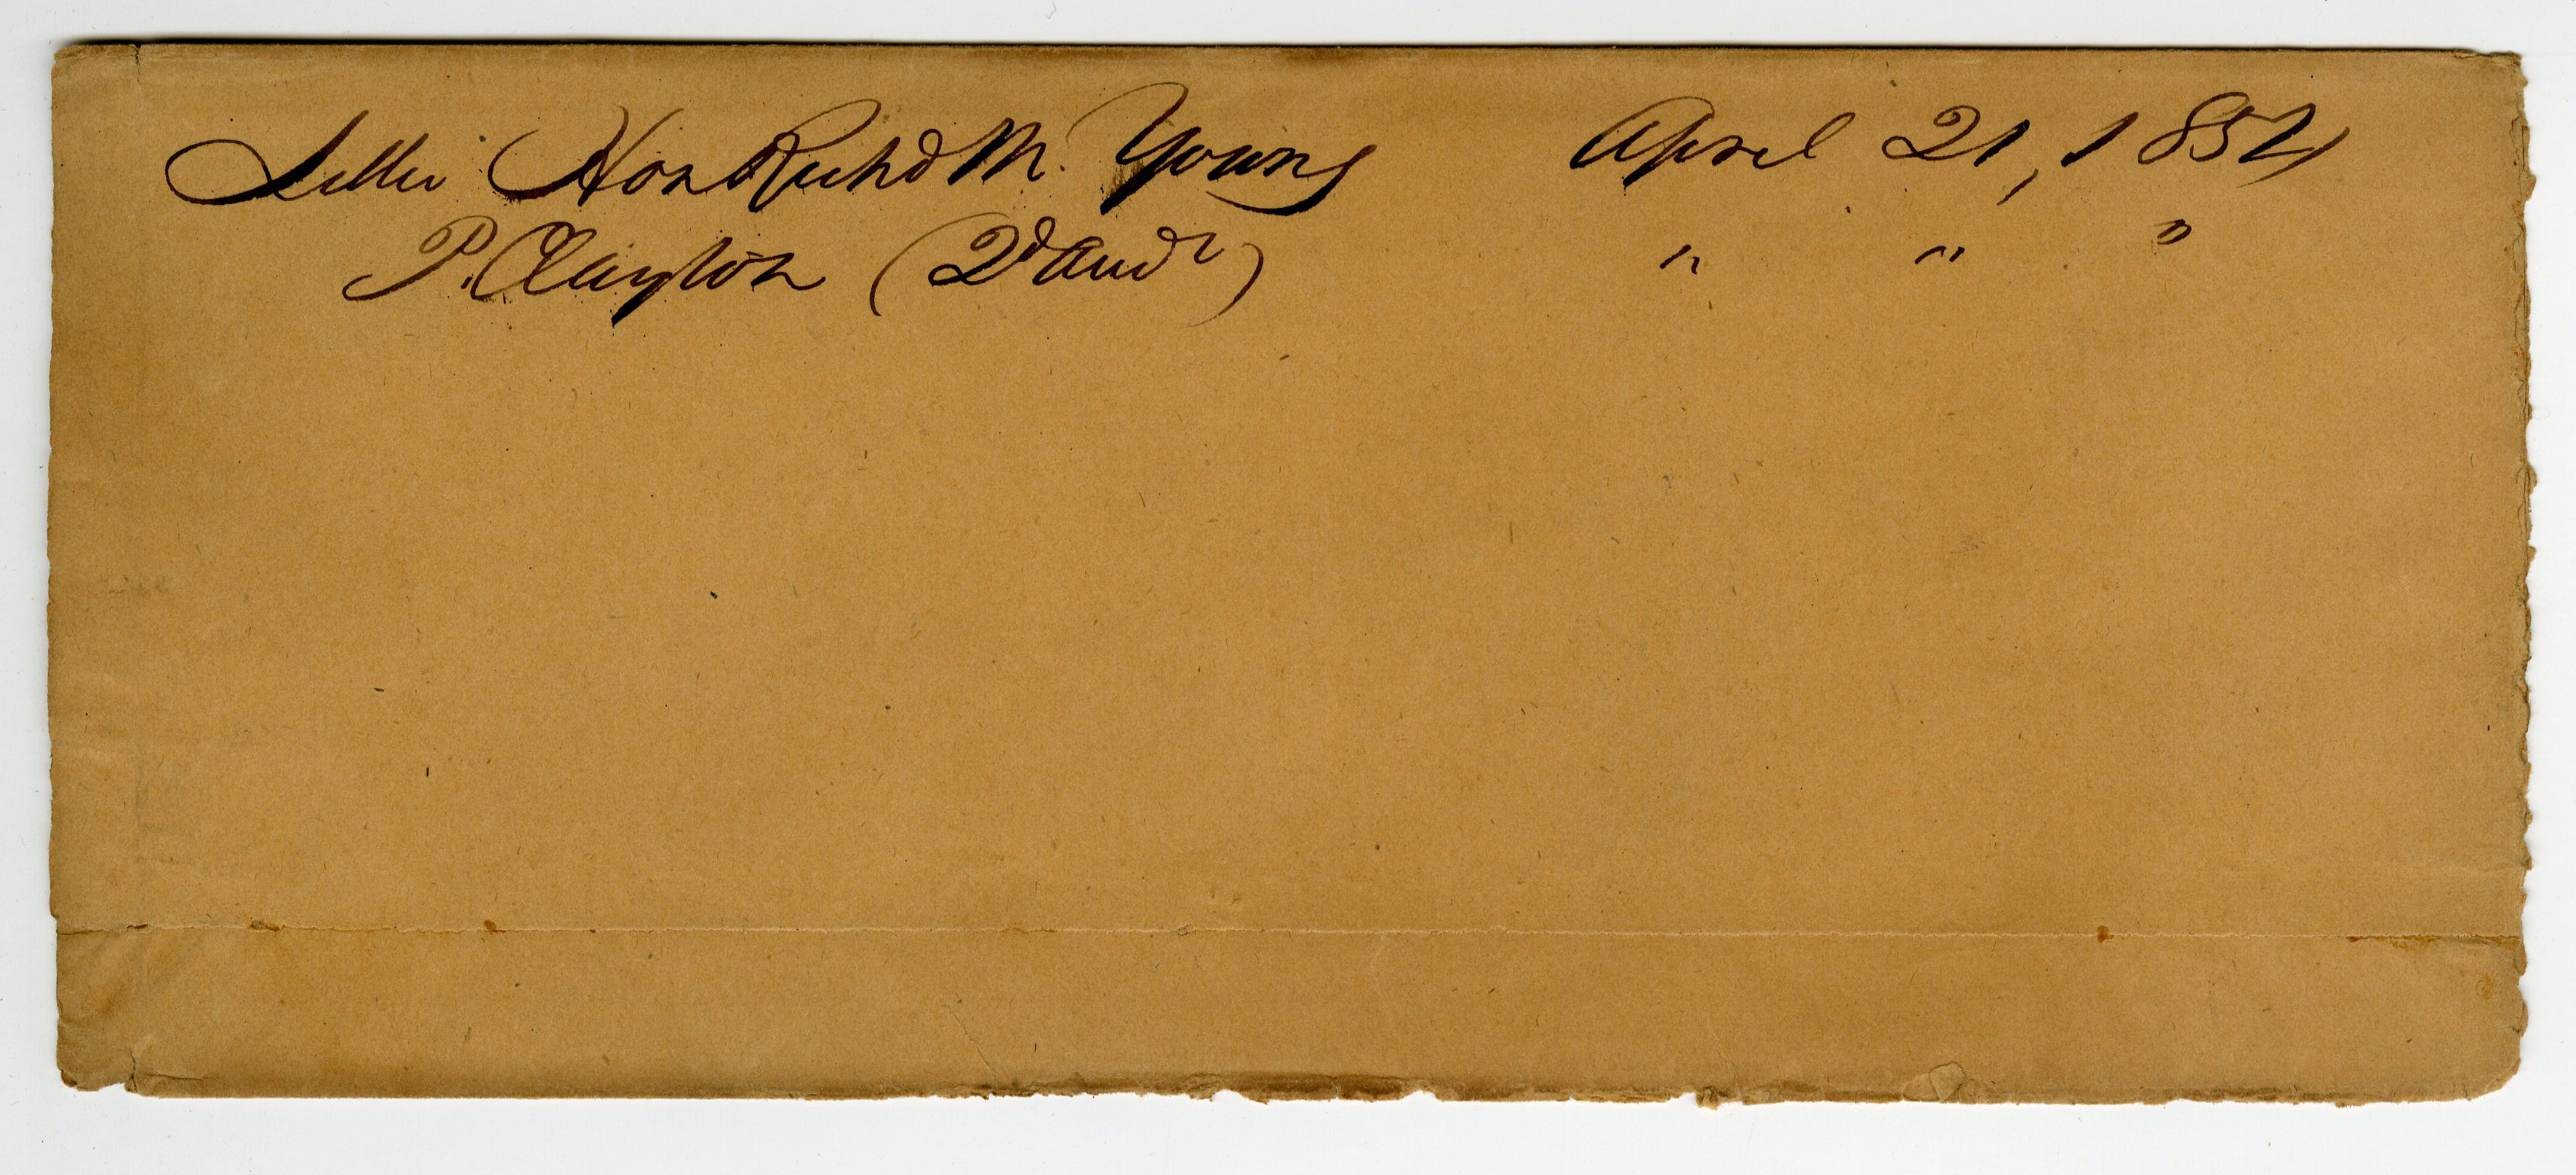 Letter Hon Richd M. Young April 21, 1854
P. Clayton (2d Audr) " " "